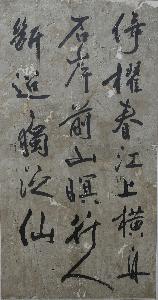 倚櫂春江上橫舟
石岸前山暝行人
斷迢〻獨泛仙